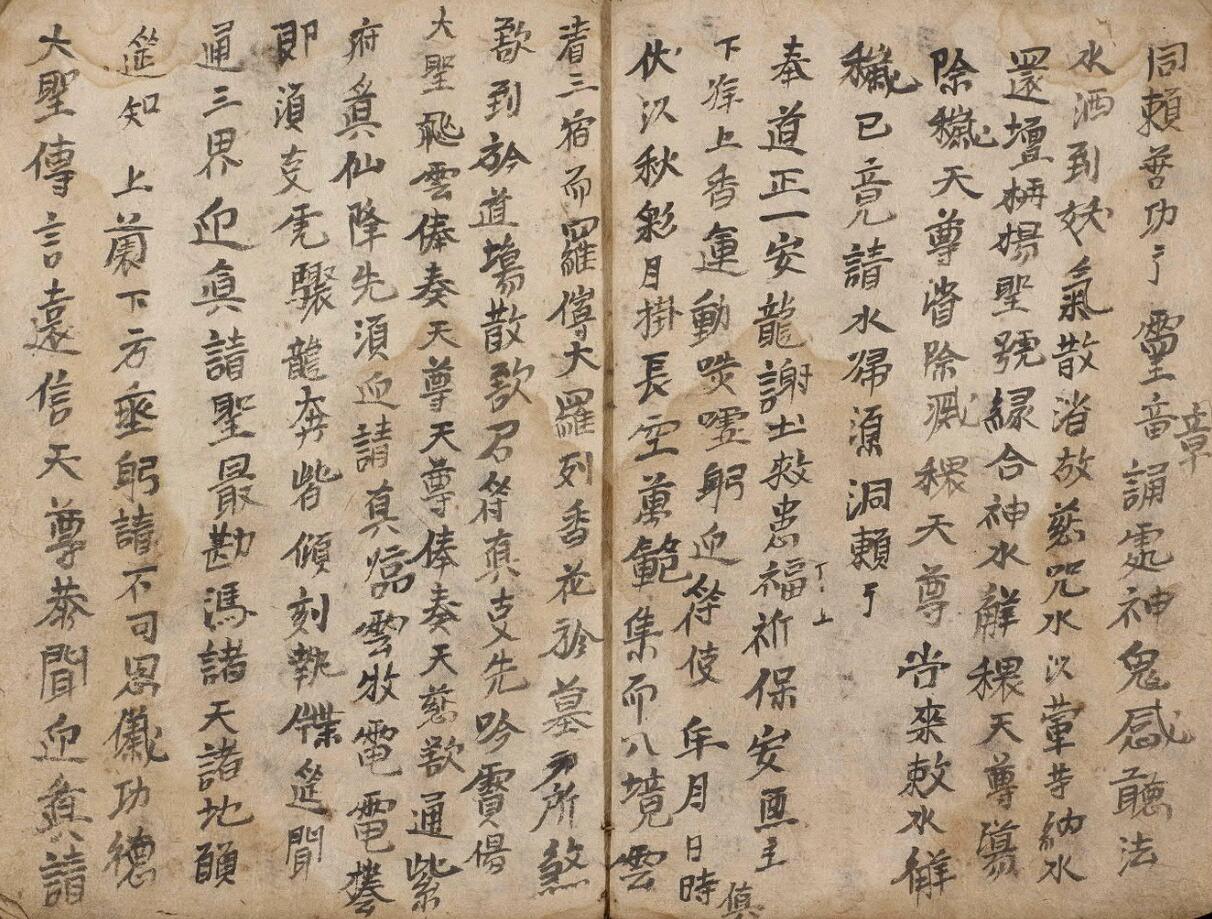 同賴善功亍靈音誦處神鬼感聽法
章
水洒到妖氣散消故慈咒水以葷等納水
還壇楊聖號緣合神水解穢天尊蕩
除穢天尊消除滅穢天尊当來敕水解
穢已竟請水歸源洞賴亍
奉道正一安龍謝土救患福祈保安畾主
丁上
下穼上香運動噗嚏躬迎符使年月日時
伏以秋彩月掛長空萬範集而八境雲
清三宿而羅傳大羅列香花於墓所煞
歆到於道塲散歆召符真支先吟寶偈
大聖飛雲俸奏天尊天尊俸奏天慈歆通紫
府眞仙降先須迎請真雲牧電電
即須支鸞龍奔皆傾刻執筵聞
通三界迎眞請聖最勘馮諸天諸地
筵知上下方垂躬請不可恩儀功德
大聖傳言遠信天尊恭聞迎眞請